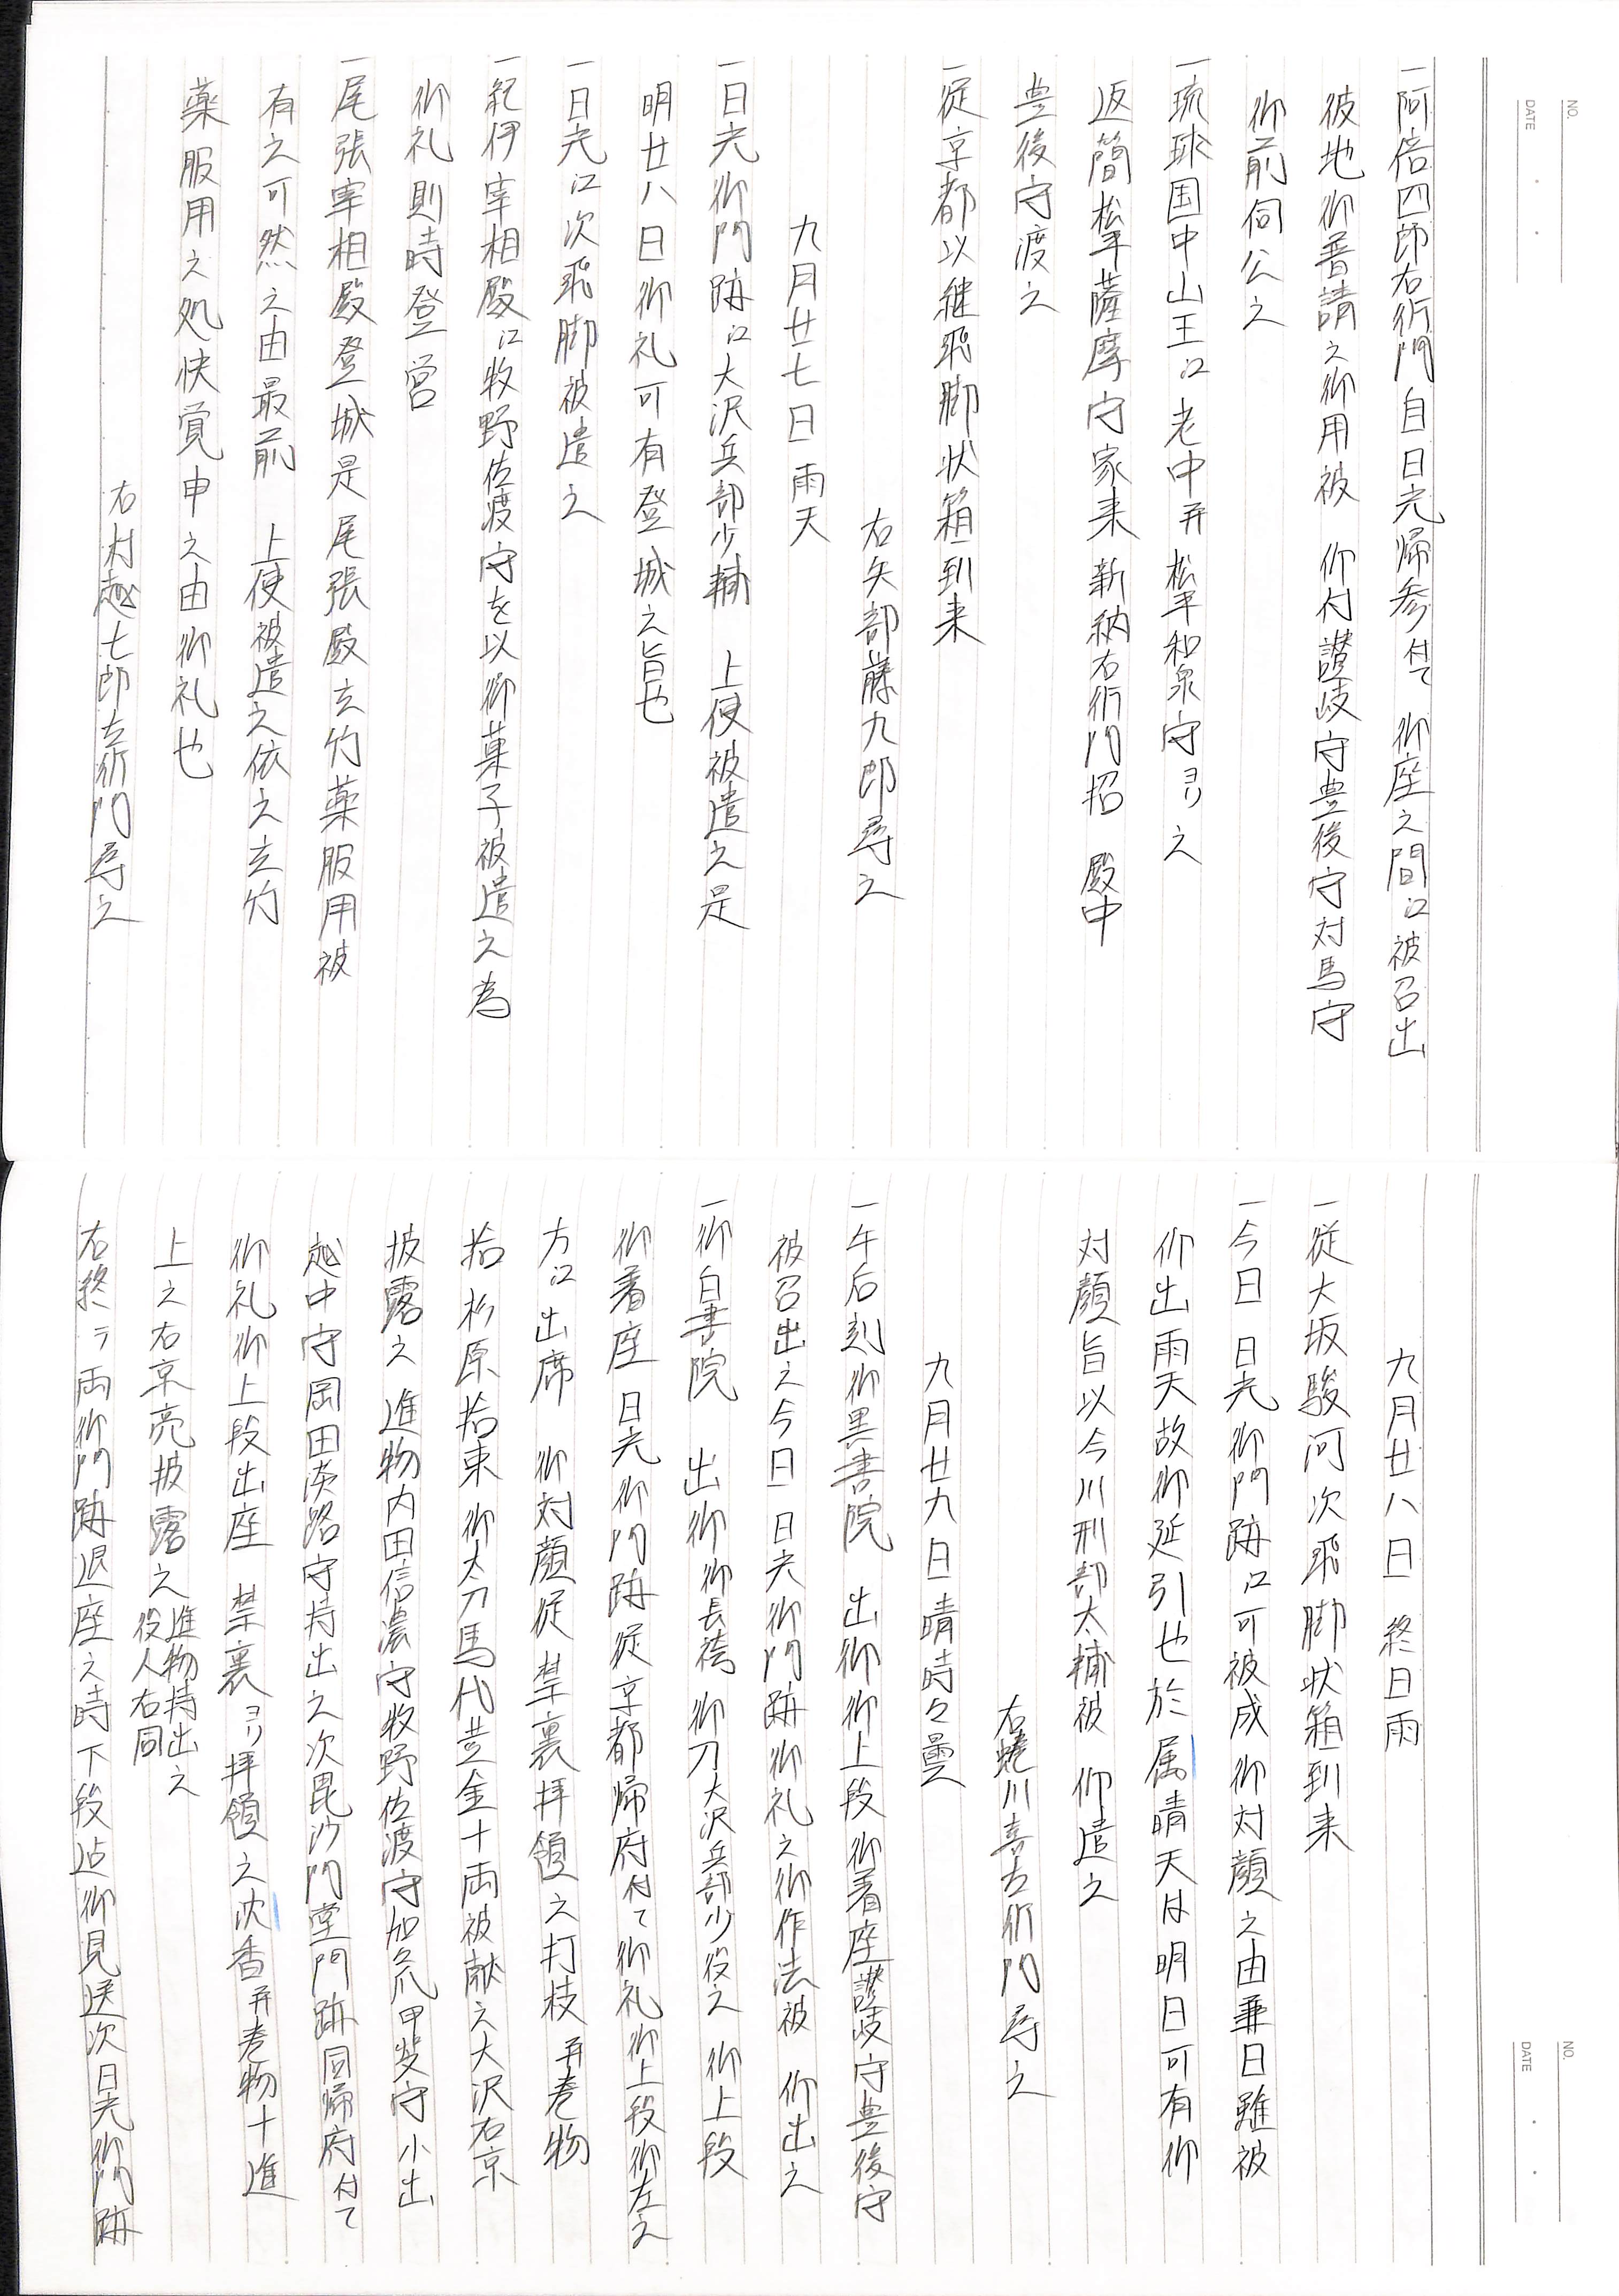 NO.
DATE
一阿倍四郎右衛門自日光帰参付て 御座之間江被召出
彼地御普請之御用被 仰付讃岐守豊後守対馬守
御前伺公之
一琉球国中山王江老中并松平和泉守ヨリ之
返簡松平薩摩守家来新納右衛門招 殿中
豊後守渡之
一従京都以継飛脚状箱到来
右矢部藤九郎尋之
九月廿七日 雨天
一日光御門跡江大沢兵部少輔 上使被遣之是
明廿八日御礼可有登城之旨也
一日光江次飛脚被遣之
一紀伊宰相殿江牧野佐渡守を以御菓子被遣之為
御礼則時登営
一尾張宰相殿登城是尾張殿玄竹薬服用被
有之可然之由最前 上使被遣之依之玄竹
薬服用之処快覚申之由御礼也
右村越七郎左衛門尋之
NO.
DATE
九月廿八日 終日雨
一従大坂駿河次飛脚状箱到来
一今日日光御門跡江可被成御対顔之由兼日雖被
仰出雨天故御延引也於属晴天は明日可有御
対顔旨以今川刑部太輔被 仰遣之
右蜷川喜左衛門尋之
九月廿九日 晴時々曇
一午后刻御黒書院 出御御上段御着座讃岐守豊後守
被召出之今日日光御門跡御礼之御作法被 仰出之
一御白書院 出御御長袴 御刀大沢兵部少役之 御上段
御着座日光御門跡従京都帰府付て御礼御上段御左之
方江出席 御対顔従禁裏拝領之打枝并巻物
拾杉原拾束御太刀馬代黄金十両被献之大沢右京
披露之進物内田信濃守牧野佐渡守加々爪甲斐守小出
越中守岡田淡路守持出之次毘沙門堂門跡同帰府付て
御礼御上段出座 禁裏ヨリ拝領之沈香并巻物十進
上之右京亮披露之進物持出之役人右同
右終テ両御門跡退座之時下段迄御見送次日光御門跡